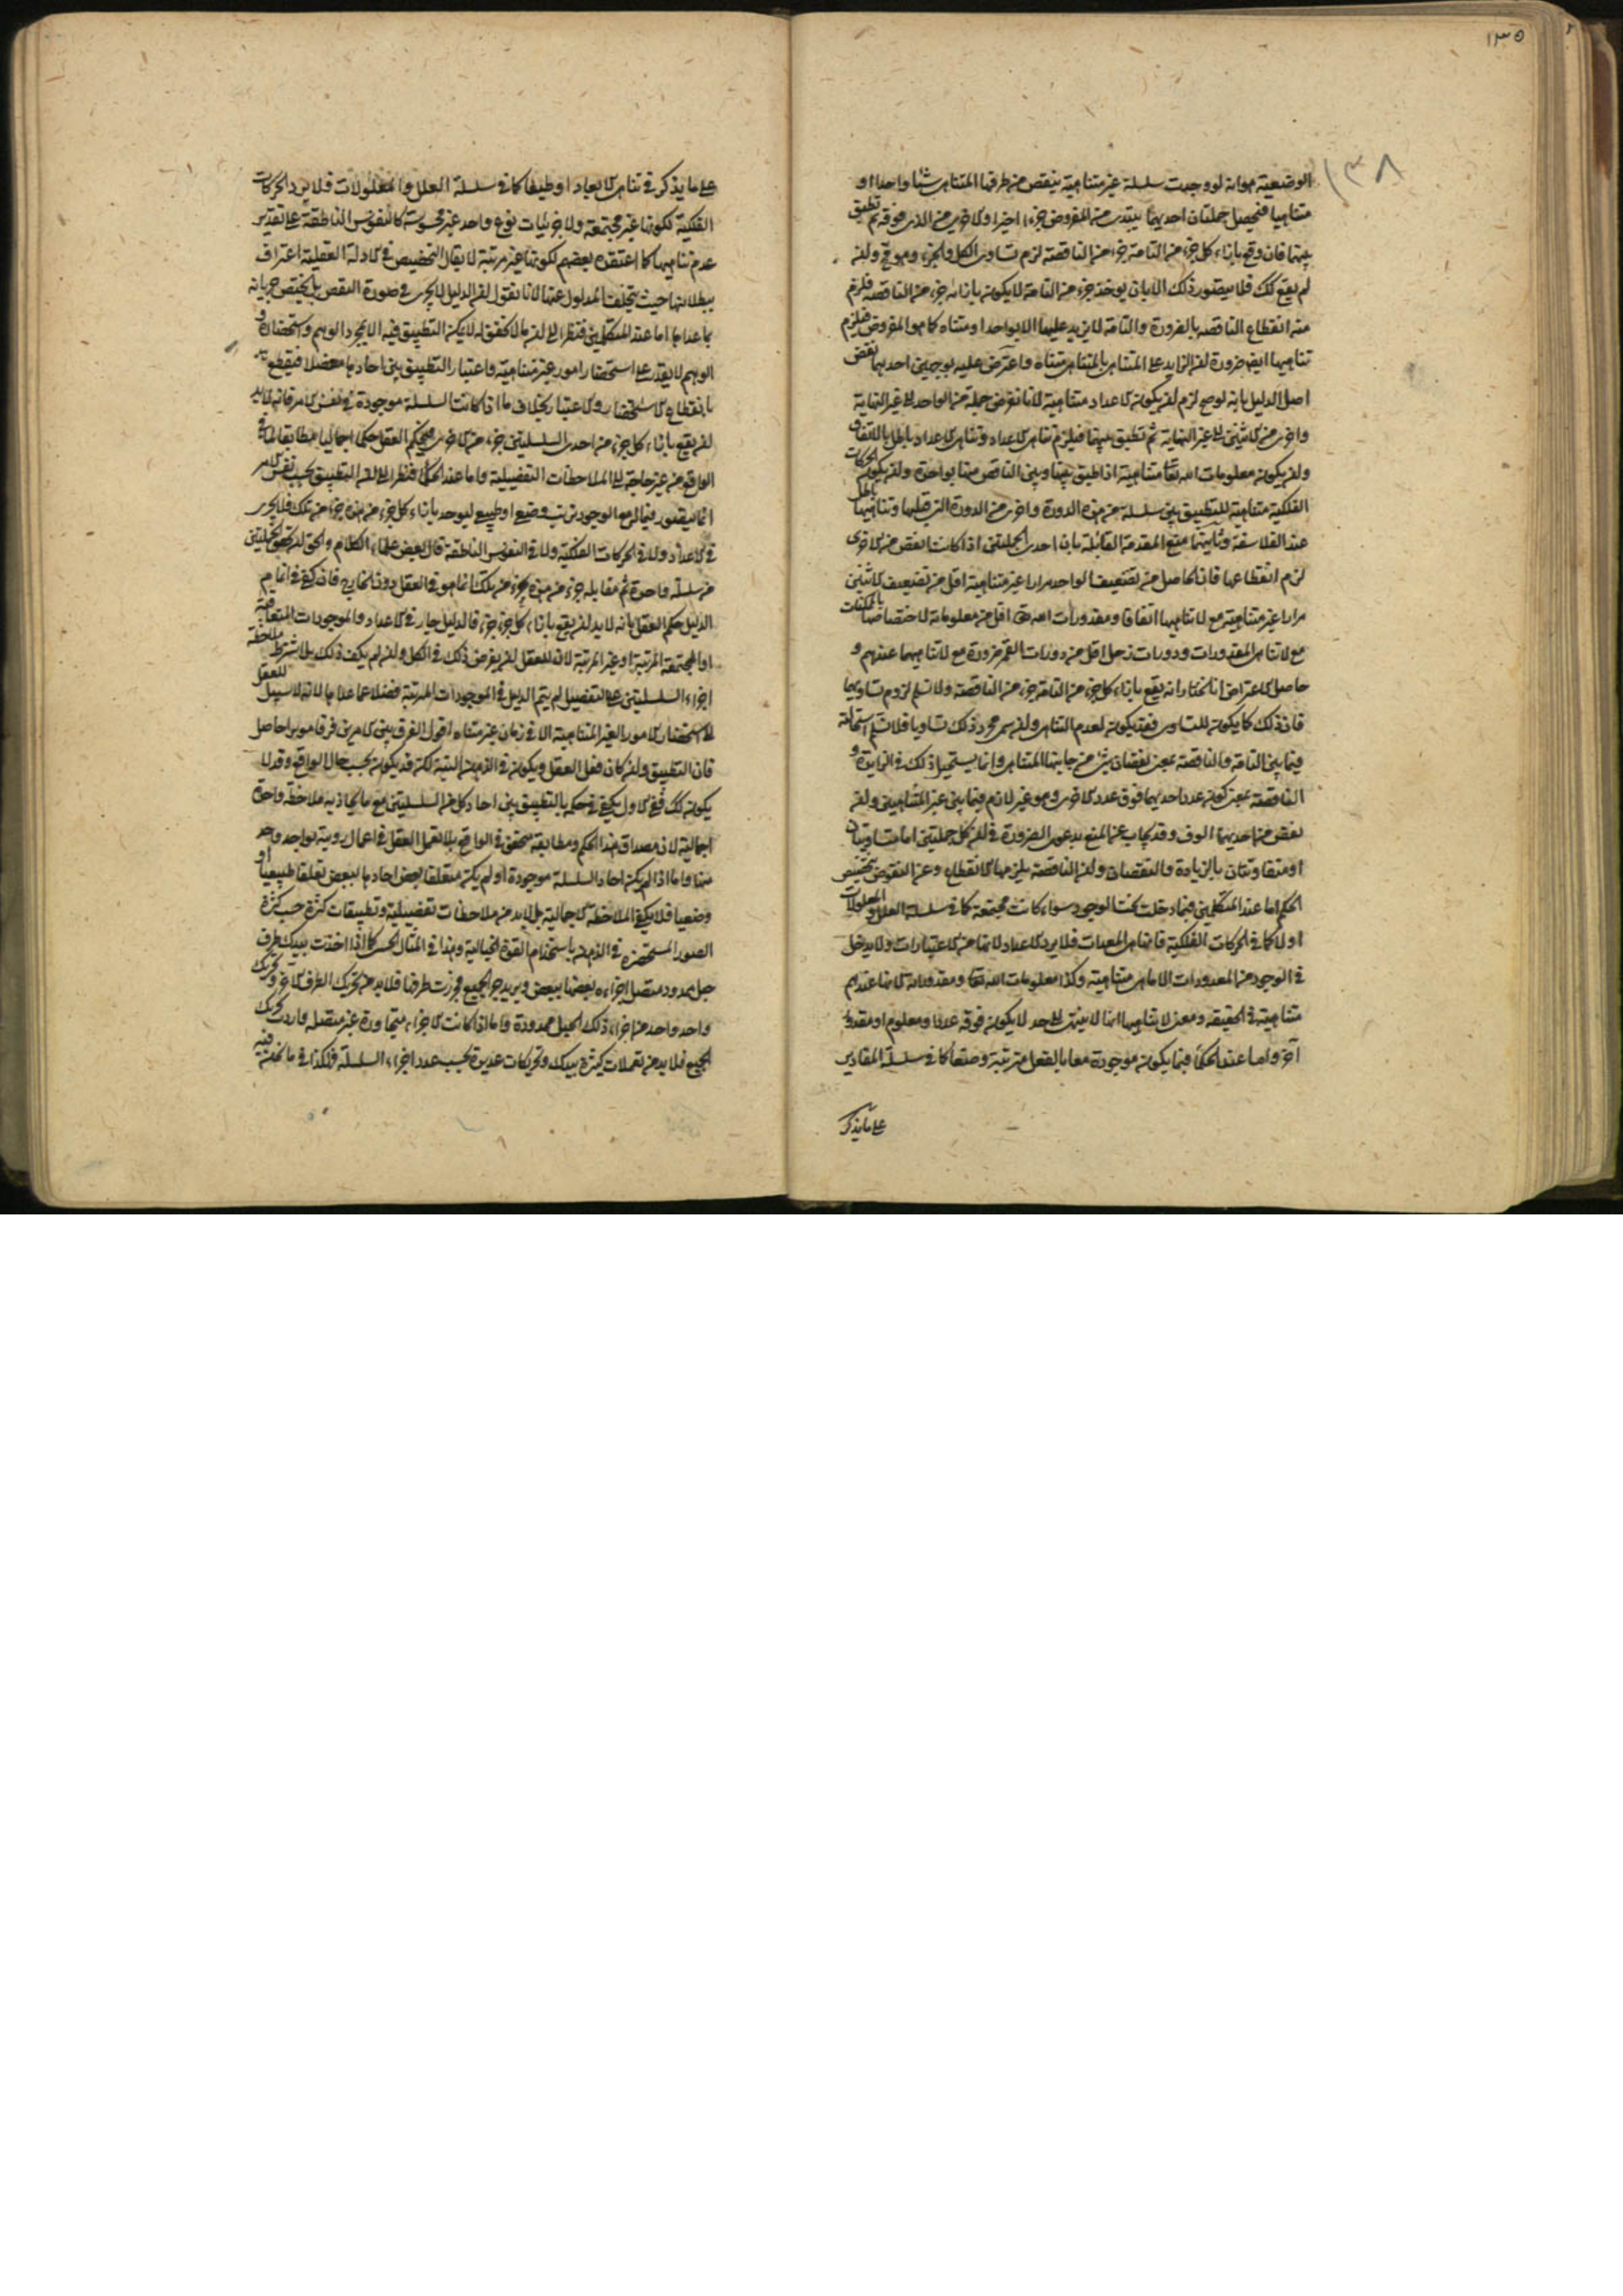 ١٣٥
١٣٨
الوضعية هو انه لو وجدت سلسلة غير متناهية ينقص من طرفها المتناهى شيئا واحدا او
متناهيا فتحصل جملتان احديهما يبتدى من المفروض جزءا اخيرا والاخرى من الذى فوقه ثم تطبق
بينهما فان وقع بازاء كل جزء من التامة جزء من الناقصة لزم تساوى الكل والجزء وهو مح ولان
لم يقع كك فلا يتصور ذلك الا بان يوجد جزء من التامة لا يكون بازائه جزء من الناقصة فلزم
منه انقطاع الناقصة بالضرورة والتامة لا يزيد عليها الا بواحد او متناه كما هو المفروض فيلزم
تناهيها ايضا ضرورة ان الزايد على المتناهى بالمتناهى متناه واعترض عليه بوجهين احدهما نقض
اصل الدليل بانه لو صح لزم ان يكون الاعداد متناهية لانا نفرض جملة من الواحد الى غير النهاية
واخرى من الاثنين الى غير النهاية ثم نطبق بينهما فيلزم تناهى الاعداد وتناهى الاعداد باطل بالاتفاق
وان يكون معلومات الله تعا متناهية اذا طبق بينها وبين الناقص منها بواحدة وان يكون الحركات
الفلكية متناهية للتطبيق بين سلسلة من هذه الدورة واخرى من الدورة التى قبلها وتناهيها باطل
عند الفلاسفة وثانيهما منع المقدمة القائلة بان احدى الجملتين اذا كانت انقص من الاخرى
لزم انقطاعها فان الحاصل من تضعيف الواحد مرارا غير متناهية اقل من تضعيف الاثنين
مرارا غير متناهية مع لا تناهيهما اتفاقا ومقدورات الله تعا اقل من معلوماته لاختصاصها بالممكنات
مع لا تناهى المقدورات ودورات زحل اقل من دورات القمر ضرورة مع لا تناهيهما عندهم و
حاصل الاعتراض انا نختار انه يقع بازاء كل جزء من التامة جزء من الناقصة ولا نسلم لزوم تساويهما
فان ذلك كما يكون للتساوى فقد يكون لعدم التناهى وان سمى مجرد ذلك تساويا فلا نسلم استحالته
فيما بين التامة والناقصة بمعنى نقصان شئ من جانبها المتناهى وانما يستحيل ذلك فى الزايدة و
الناقصة بمعنى كون عدد احديهما فوق عدد الاخرى وهو غير لازم فيما بين غير المتناهيين وان
نقص من احديهما الوف وقد يجاب عن المنع بدعوى الضرورة فى ان كل جملتين اما متساويتان
او متفاوتتان بالزيادة والنقصان وان الناقصة يلزمها الانقطاع وعن النقوض بتخصيص
الحكم اما عند المتكلمين فبما دخلت تحت الوجود سواء كانت مجتمعة كما فى سلسلة العلل والمعلولات
او لا كما فى الحركات الفلكية فانها من المعدات فلا يرد الاعداد لانها من الاعتبارات ولا يدخل
فى الوجود من المعدودات الا ما هى متناهية وكذا معلومات الله تعا ومقدوراته لانها عندهم
متناهية فى الحقيقة ومعنى لا تناهيهما انها لا ينتهى الى حد لا يكون فوقه عدد او معلوم او مقدور
آخر واما عند الحكماء فبما يكون موجودة معا بالفعل مترتبة وضعا كما فى سلسلة المقادير
على ما يذكر
على ما يذكر فى تناهى الابعاد او طبعا كما فى سلسلة العلل والمعلولات فلا يرد الحركات
الفلكية لكونها غير مجتمعة ولا جزئيات نوع واحد غير محسوسة كالنفوس الناطقة على تقدير
عدم تناهيها كما اعتقده بعضهم لكونها غير مرتبة لا يقال التخصيص فى الادلة العقلية اعتراف
ببطلانها حيث يتخلف المدلول عنها لانا نقول ان الدليل لا يجرى فى صورة النقص بل يختص جريانه
بما عداها اما عند المتكلمين فنظرا الى ان ما لا تحقق له لا يمكن التطبيق فيه الا بمجرد الوهم واستحضاره و
الوهم لا يقدر على استحضار امور غير متناهية واعتبار التطبيق بين احادها مفصلا فينقطع
بانقطاع الاستحضار والاعتبار بخلاف ما اذا كانت السلسلة موجودة فى نفس الامر فانه لا بد
ان يقع بازاء كل جزء من احدى السلسلتين جزء من الاخرى فيحكم العقل حكما اجماليا مطابقا لما فى
الواقع من غير حاجة الى الملاحظات التفصيلية واما عند الحكماء فنظرا الى ان التطبيق بحسب نفس الامر
انما يتصور فيما له مع الوجود ترتب وضعى او طبيعى ليوجد بازاء كل جزء من هذه جزء من تلك فلا يجرى
فى الاعداد ولا فى الحركات الفلكية ولا فى النفوس الناطقة قال بعض علماء الكلام والحق ان تحقق الجملتين
من سلسلة واحدة ثم مقابلة جزء من هذه بجزء من تلك انما هو فى العقل دون الخارج فان كفى فى اتمام
الدليل حكم العقل بانه لا بد ان يقع بازاء كل جزء جزء فالدليل جار فى الاعداد والموجودات المتعاقبة
او المجتمعة المرتبة او غير المرتبة لان للعقل ان يفرض ذلك فى الكل وان لم يكف ذلك بل اشترط ملاحظة
اجزاء السلسلتين على التفصيل لم يتم الدليل فى الموجودات المرتبة فضلا عما عداها لانه لا سبيل للعقل
الى استحضار الامور الغير المتناهية الا فى زمان غير متناه اقول الفرق بين الامرين فرقا موبرا حاصل
فان التطبيق وان كان فعل العقل ويكون فى الذهن البتة لكنه قد يكون بحسب حال الواقع وقد لا
يكون كك ففى الاول يكفى فى حكمه بالتطبيق بين احاد كل من السلسلتين مع ما يحاذيه ملاحظة واحدة
اجمالية لان مصداق هذا الحكم ومطابقه متحقق فى الواقع بلا تعمل العقل فى اعمال روية لواحد واحد
منها واما اذا لم يكن احاد السلسلة موجودة او لم يكن متعلقا بعض احادها ببعض تعلقا طبيعيا او
وضعيا فلا يكفى الملاحظة الاجمالية بل لا بد من ملاحظات تفصيلية وتطبيقات كثرة حسب كثرة
الصور المستحضرة فى الذهن باستخدام القوة الخيالية وهذا فى المثال الحسى كما اذا اخذت بيدك طرف
حبل ممدود متصل اجزاءه بعضها ببعض ويريد جر الجميع فجررت طرفها فلا بد من تحريك الطرف الاخر وتحريك
واحد واحد من اجزاء ذلك الحبل ممدودة واما اذا كانت الاجزاء متجاورة غير متصلة واردت تحريك
الجميع فلا بد من تعملات كثيرة بيدك وتحريكات عديدة بحسب عدد اجزاء السلسلة فهكذا فى ما نحن فيه